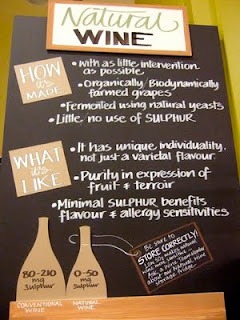 Natural
WINE
HOW
it's
MADE
• With as little intervention
as possible.
• Organically/Biodynamically
farmed grapes
• Fermented using natural yeasts
• Little/no use of SULPHUR
WHAT
it's
LIKE
• It has unique individuality,
not just a varietal flavour.
• Purity in expression of
fruit & terroir
• Minimal SULPHUR benefits
flavour & allergy sensitivities
80-210
mg
Sulphur
0-50
mg
Sulphur
Be sure to
STORE CORRECTLY!
CONVENTIONAL
WINE
NATURAL
WINE